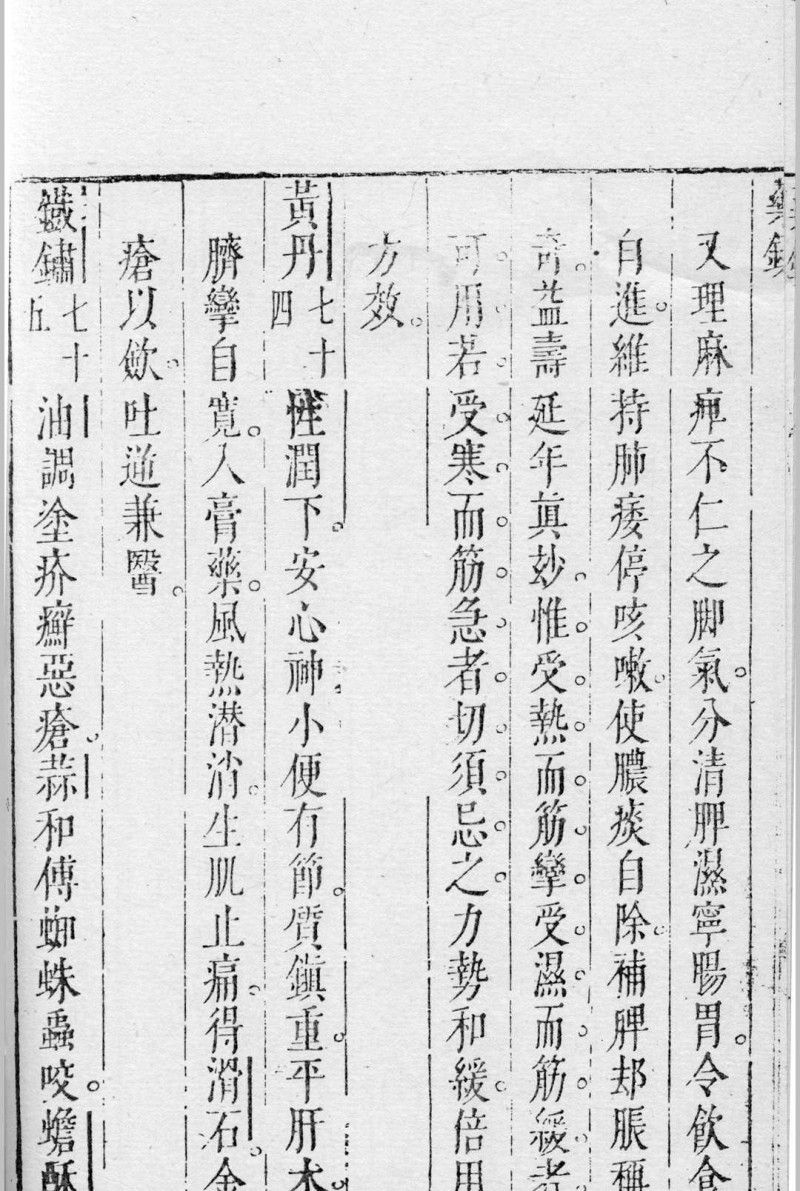 藥鏡
又理麻痺不仁之脚氣。分清脾濕寧腸胃。令飲食
自進。維持肺痿停咳嗽。使膿痰自除。補脾却脹稱
奇。益壽延年眞妙。惟受熱而筋攣受濕而筋緩者
可用若受寒而筋急者切須忌之力勢和緩。倍用
方效。
黃丹七十四 性潤下。安心神。小便有節。質鎭重。平肝木。
臍攣自寬。入膏藥。風熱潜消。生肌止痛。得滑石。金
瘡以歛。吐逆兼醫。
鐵鏽七十五 油調塗疥癬惡瘡。蒜和傅蜘蛛蟲咬。蟾酥